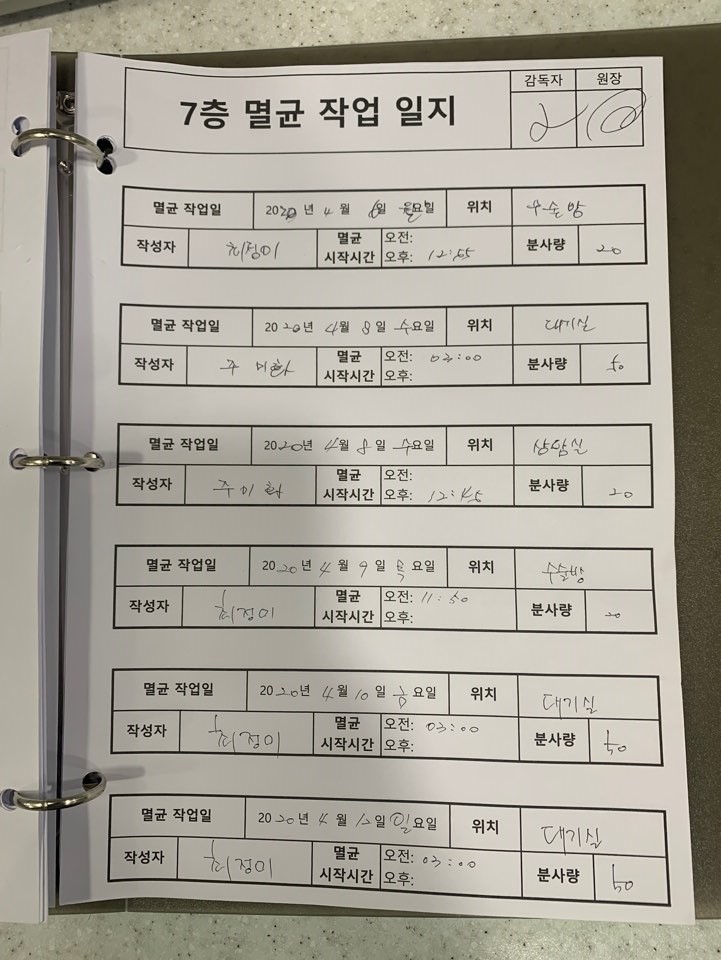 7층 멸균 작업 일지
감독자 원장
멸균 작업일 2020년 4월 6일 월요일 위치 수술방
작성자 최정미 멸균 시작시간 오전: 오후: 12:55 분사량 20
멸균 작업일 2020년 4월 8일 수요일 위치 대기실
작성자 주미화 멸균 시작시간 오전: 03:00 오후: 분사량 50
멸균 작업일 2020년 4월 8일 수요일 위치 상담실
작성자 주미화 멸균 시작시간 오전: 오후: 12:45 분사량 20
멸균 작업일 2020년 4월 9일 목요일 위치 수술방
작성자 최정미 멸균 시작시간 오전: 11:50 오후: 분사량 20
멸균 작업일 2020년 4월 10일 금요일 위치 대기실
작성자 최정미 멸균 시작시간 오전: 03:00 오후: 분사량 50
멸균 작업일 2020년 4월 12일 일요일 위치 대기실
작성자 최정미 멸균 시작시간 오전: 03:00 오후: 분사량 50